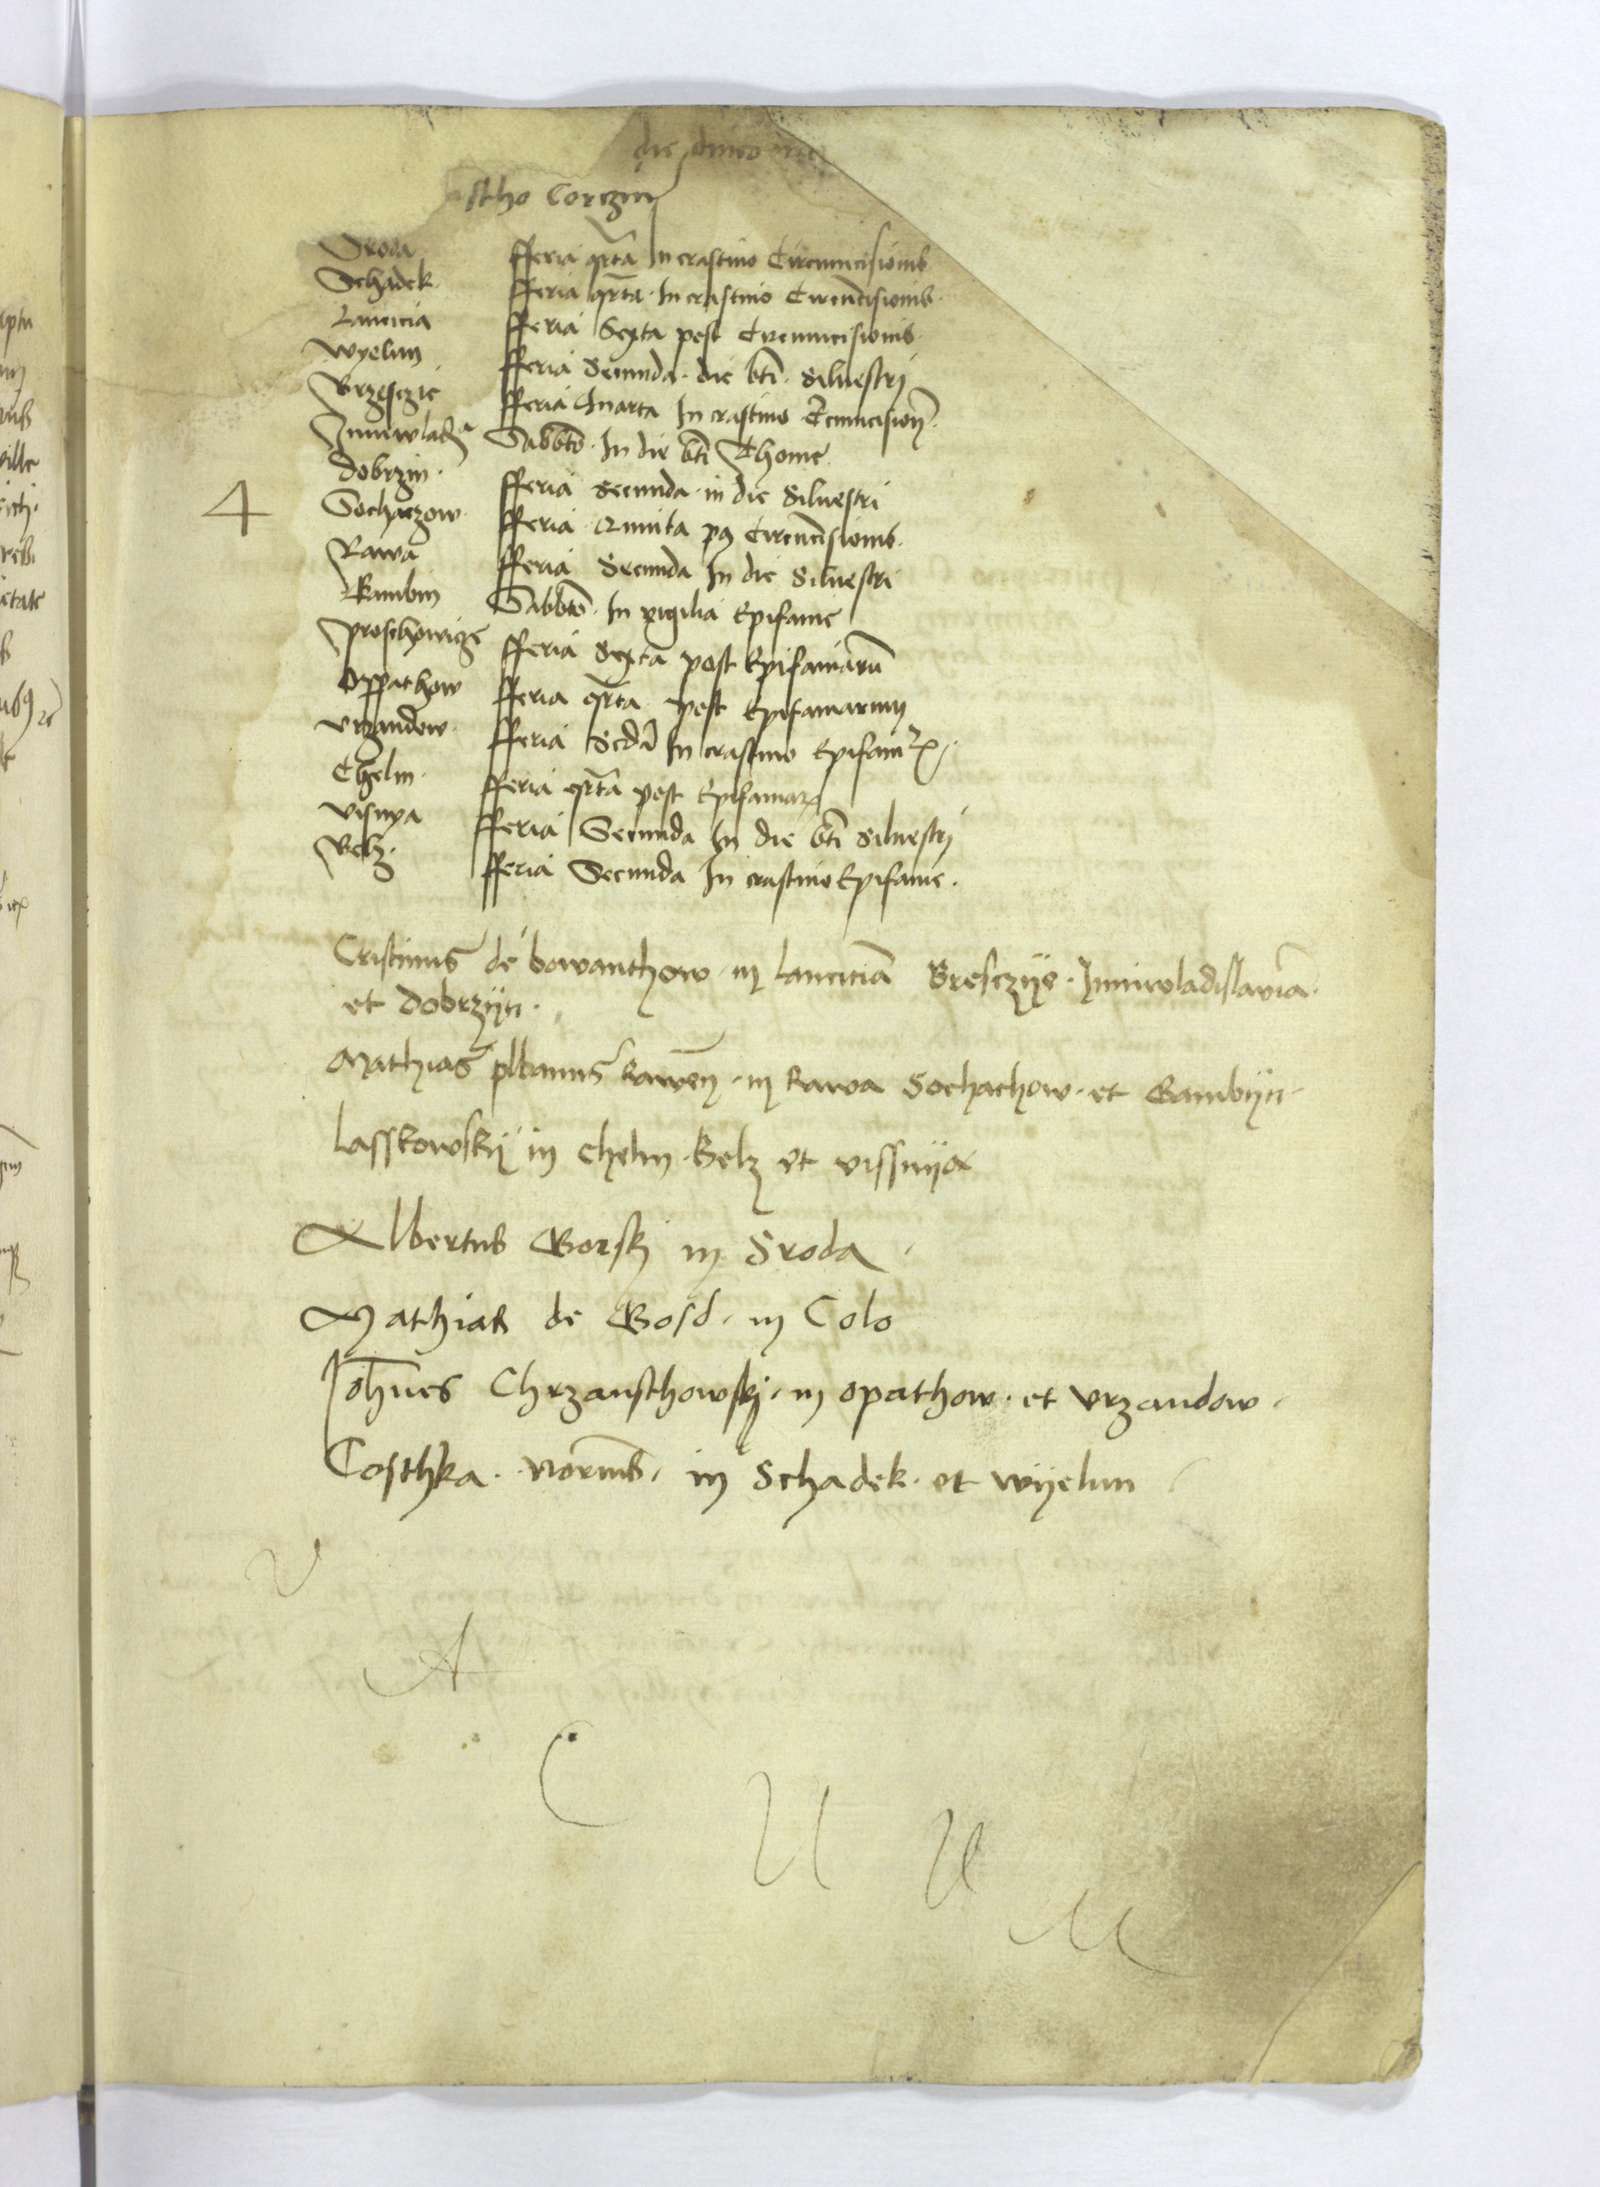 die dmico
stho Corczin
Sroda fferia qrta In crastino Circumcisionis
Schadek fferia qrta. In crastino Circucisionis.
Lancicia fferia Sexta post Circumcisionis.
Wyelun fferia Secunda. die bti. Siluestrj
Brzesczie fferia Quarta In crastino Circumcision.
Juniwladza Sabbto. In die bti Thome
Dobrzin. fferia secunda. in die Siluestri
4 Sochaczow. fferia. Quinta pt Circucisionis.
Rawa fferia Secunda In die Siluestri
Kambin Sabbto. In vigilia Epifanie
Proschowicze fferia Sexta post Epifaniaru
Oppathow fferia qrta post Epifaniarum
Vrzandow. fferia Scda In crastino Epifaniar.
Chelm. fferia qrta post Epifaniar
Visnya fferia Secunda In die bti Siluestrj
Belz. fferia Secunda In crastino Epifanie.
Cristinus de bowanthow in lanciciam Bresczije. Juniwladislauiam.
et Dobrzyn.
Mathias plbanus Rawen. in Rawa Sochachow. et Gambijn.
Lasskowskij in Chelm. Belz et vissnija
Albertus Gorskj in Sroda.
Mathias de Gosd. in Colo
Iohes Chrzansthowskj. in opathow. et vrzandow.
Costhka. in Schadek. et wijelun
V
A
C
U
U
M